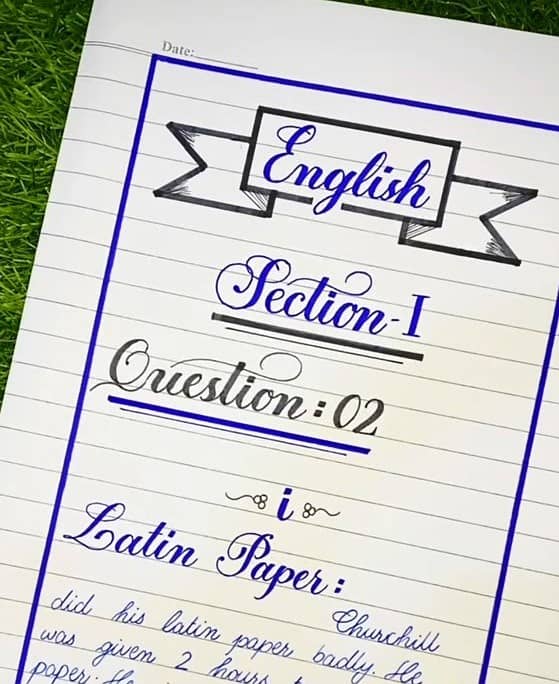 Date:
English
Section-I
Question: 02
i
Latin Paper:
Churchill
did his latin paper badly. He
was given 2 hours
paper. He